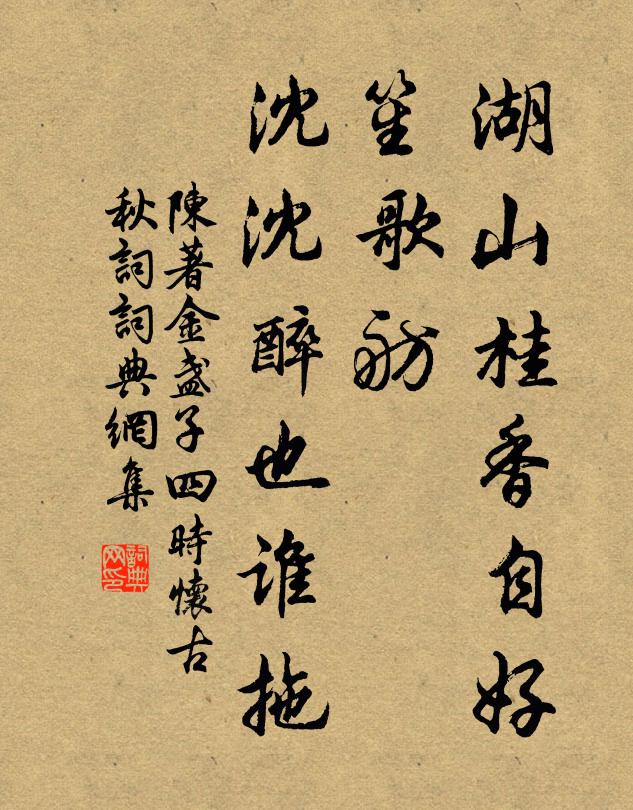 湖山桂香自好
笙歌舫
沈沈醉也谁拖
陳著金盞子四時懷古
秋詞詞典網集
詞典网印